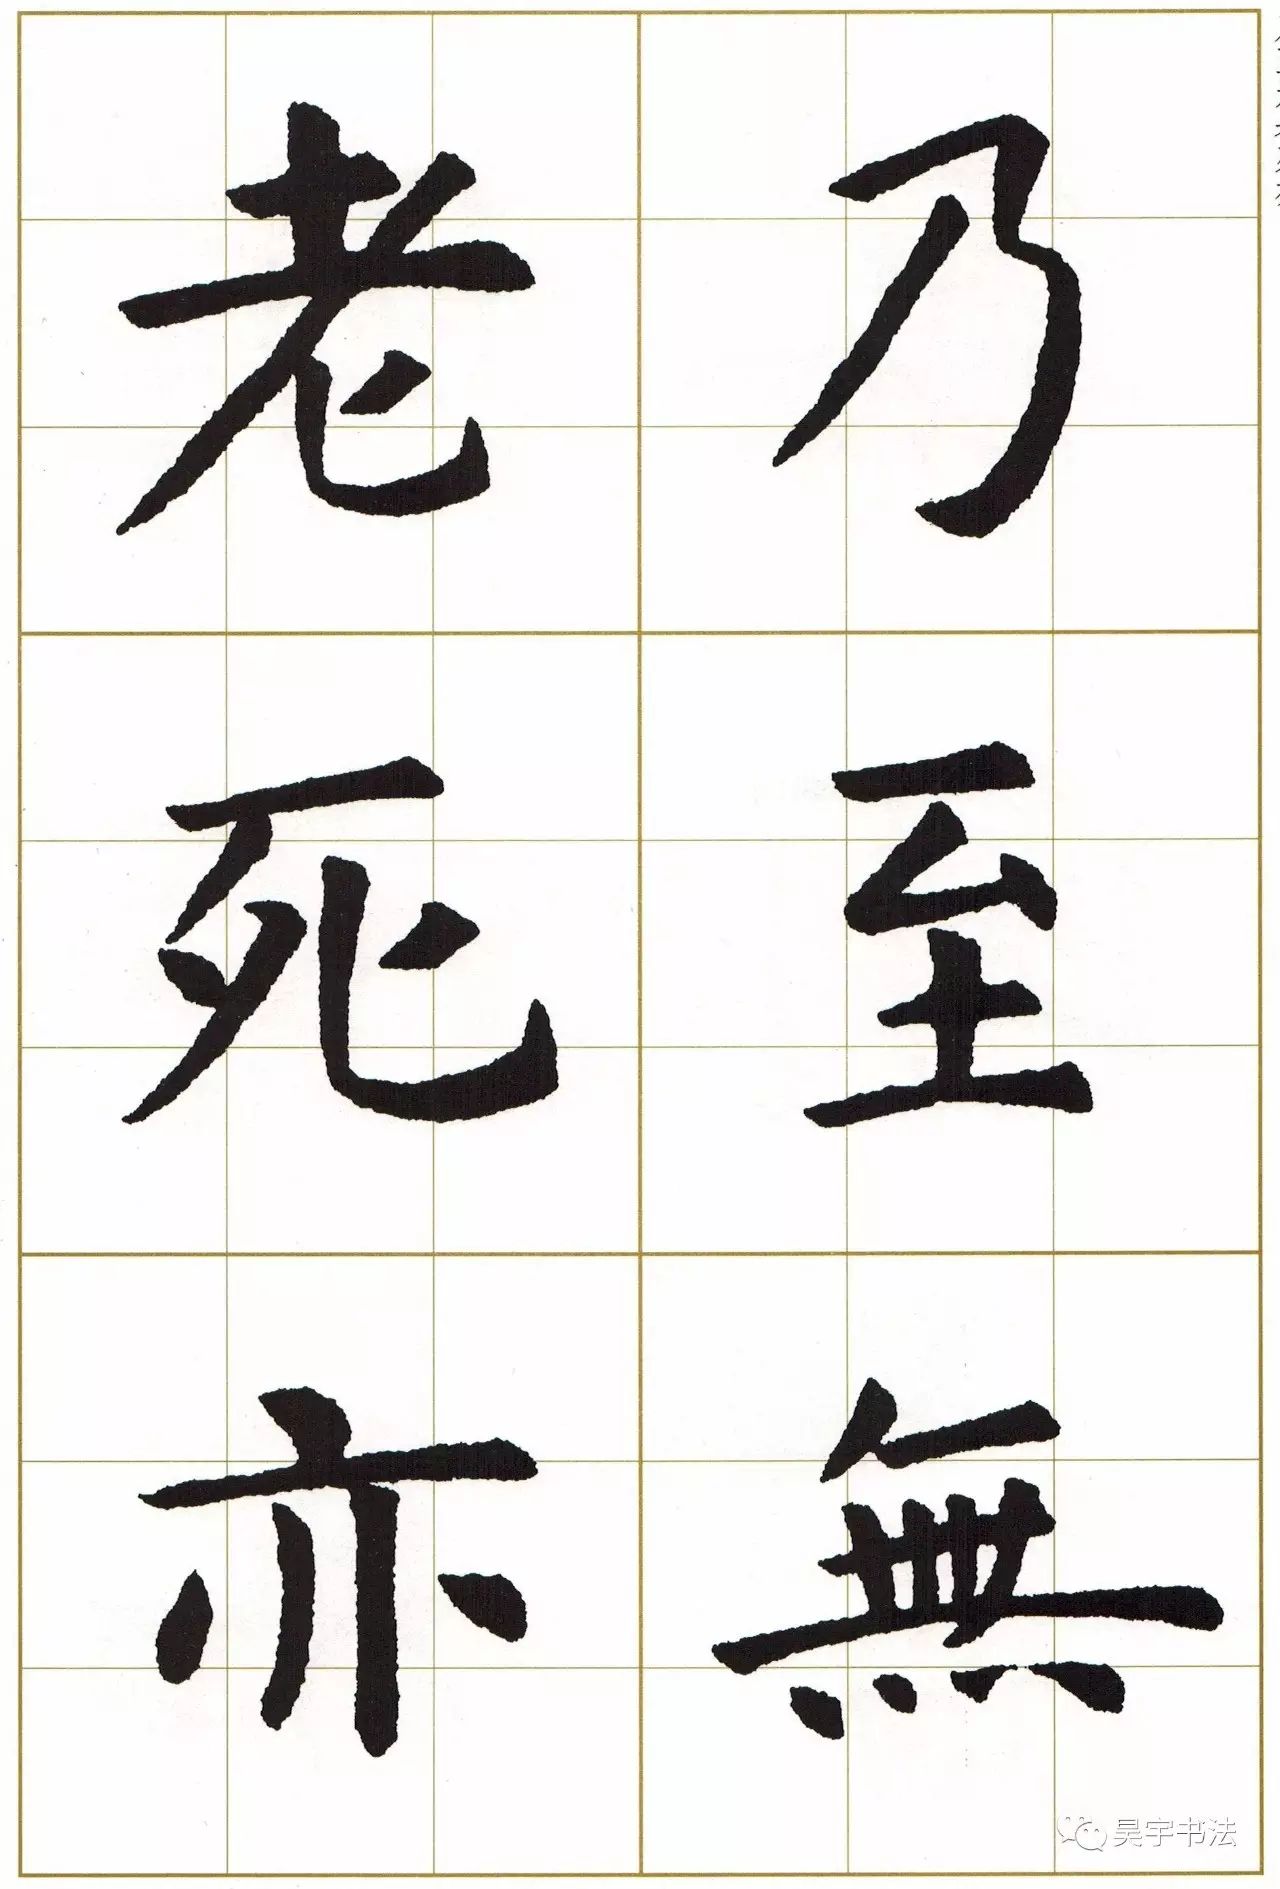 乃至無
老死亦
昊宇书法